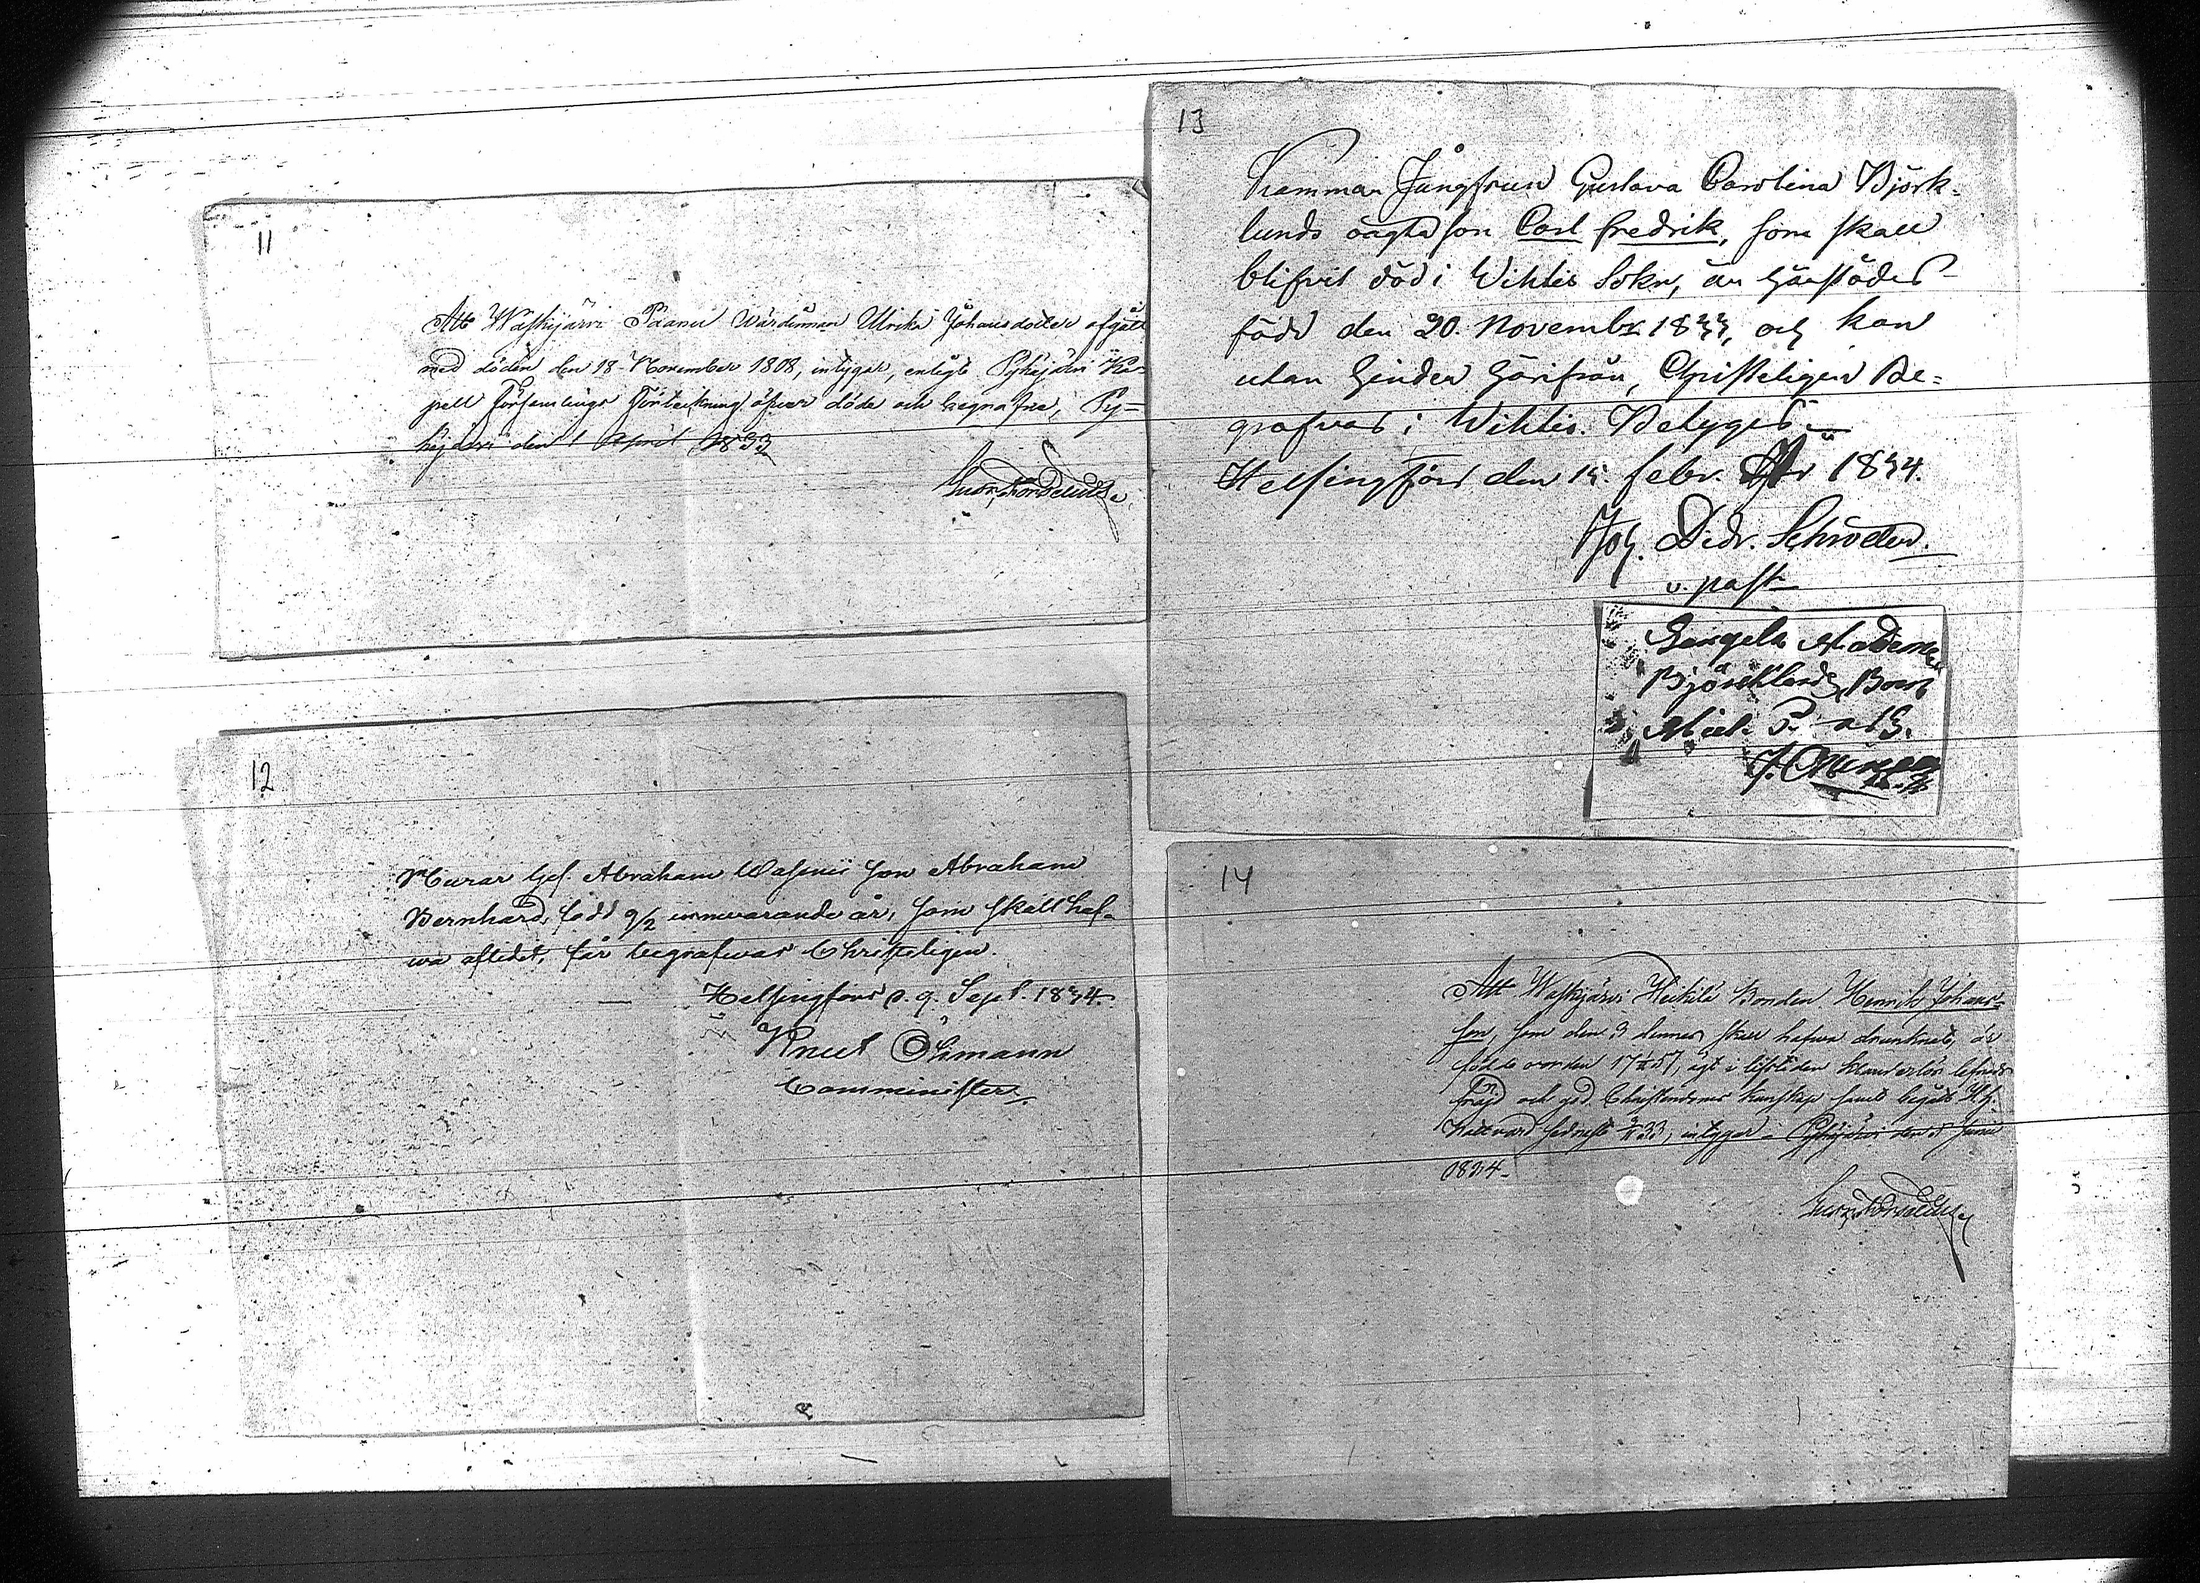 11
Att Waskijärvi Paanu Wärdinnan Ulrika Johansdotter afgått
med döden den 18 November 1808, intygar, enligt Pyhäjärvi Ka-
pell Församlings Förteckning öfver döde och begrafne, Py-
häjärvi den 1 April 1833
12
Murar Ges. Abraham Wasenii son Abraham
Bernhard, född 9/2 innevarande år, som skall haf-
wa aflidit, får begrafwas Christeligen.
Helsingfors d. 9. Sept. 1834
Knut Öhmann
Comminister
13
Kammar Jungfrun Gustava Carolina Björk-
lunds oägta son Carl Fredrik, som skall
blifvit död i Wihtis Sokn, är härstädes
född den 20. Novembr 1833, och kan
utan hinder härifrån, Christeligen Be-
grafvas i Wihtis. Betygas
Helsingfors den 15. febr. 1834.
Joh. Didr. Schröder.
v. past
Björklunds Barn
14
Att Waskijärvi Heikilä Bonden Henrik Johans-
son, som den 3 dennes skall hafwa drunknat, är
född worden 17 57, ägt i lifstiden klanderlös lefnads
fräjd och god Christendoms kunskap samt begått H. H.
Nattvard sednast 33, intygar Pyhäjärvi den Junii
1834